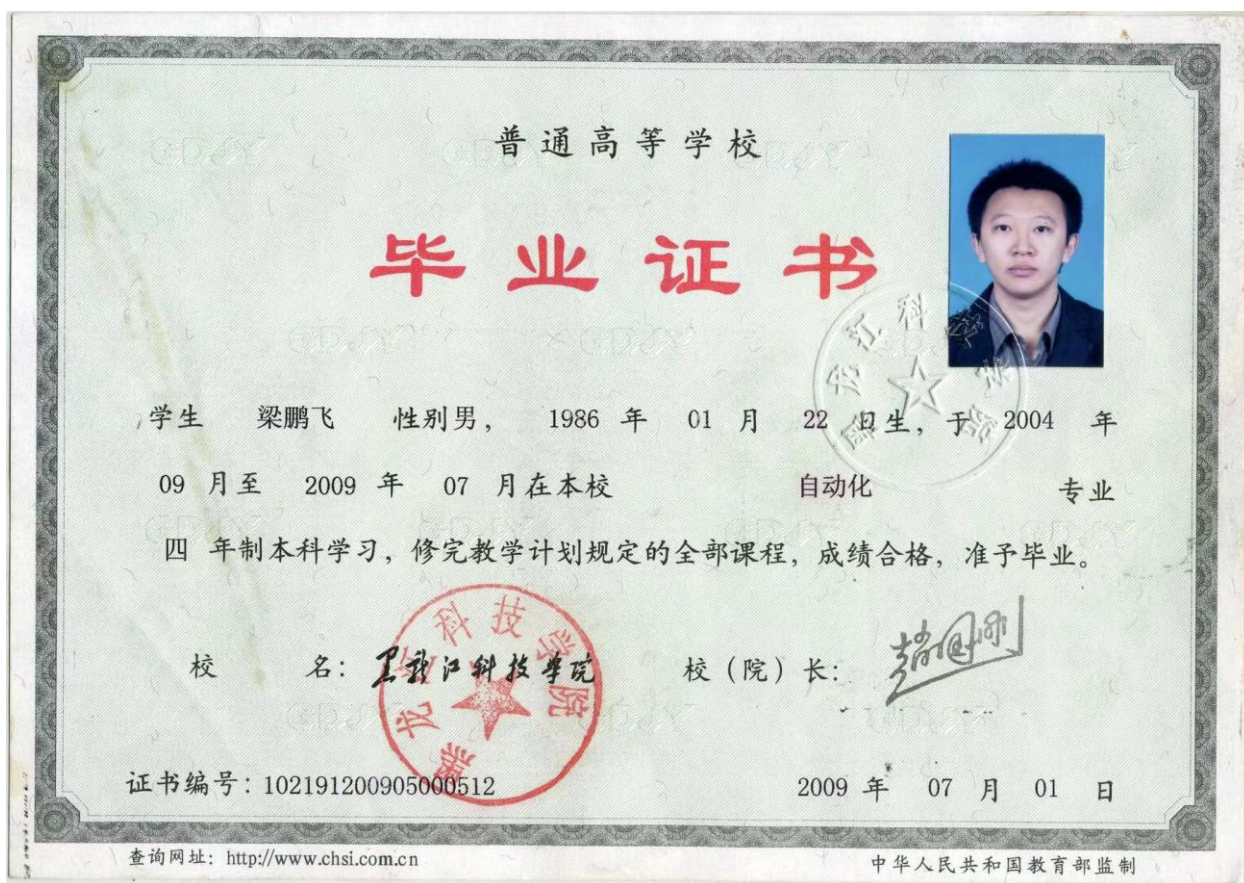 普通高等学校
毕业证书
学生 梁鹏飞 性别男, 1986 年 01 月 22 日生, 于 2004 年
09 月至 2009 年 07 月在本校 自动化 专业
四 年制本科学习, 修完教学计划规定的全部课程, 成绩合格, 准予毕业。
校 名: 黑龙江科技学院 校(院)长: 赵国刚
黑龙江科技学院
证书编号: 102191200905000512 2009 年 07 月 01 日
查询网址: http://www.chsi.com.cn 中华人民共和国教育部监制